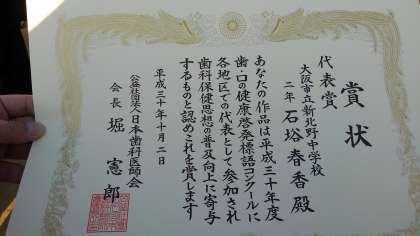 賞状
代表賞
大阪市立新北野中学校
二年 石塔春香殿
あなたの作品は平成三十年度
歯・口の健康啓発標語コンクールに
各地区での代表として参加され
歯科保健思想の普及向上に寄与
するものと認めこれを賞します
平成三十年十月二日
公益社団法人日本歯科医師会
会長 堀憲郎